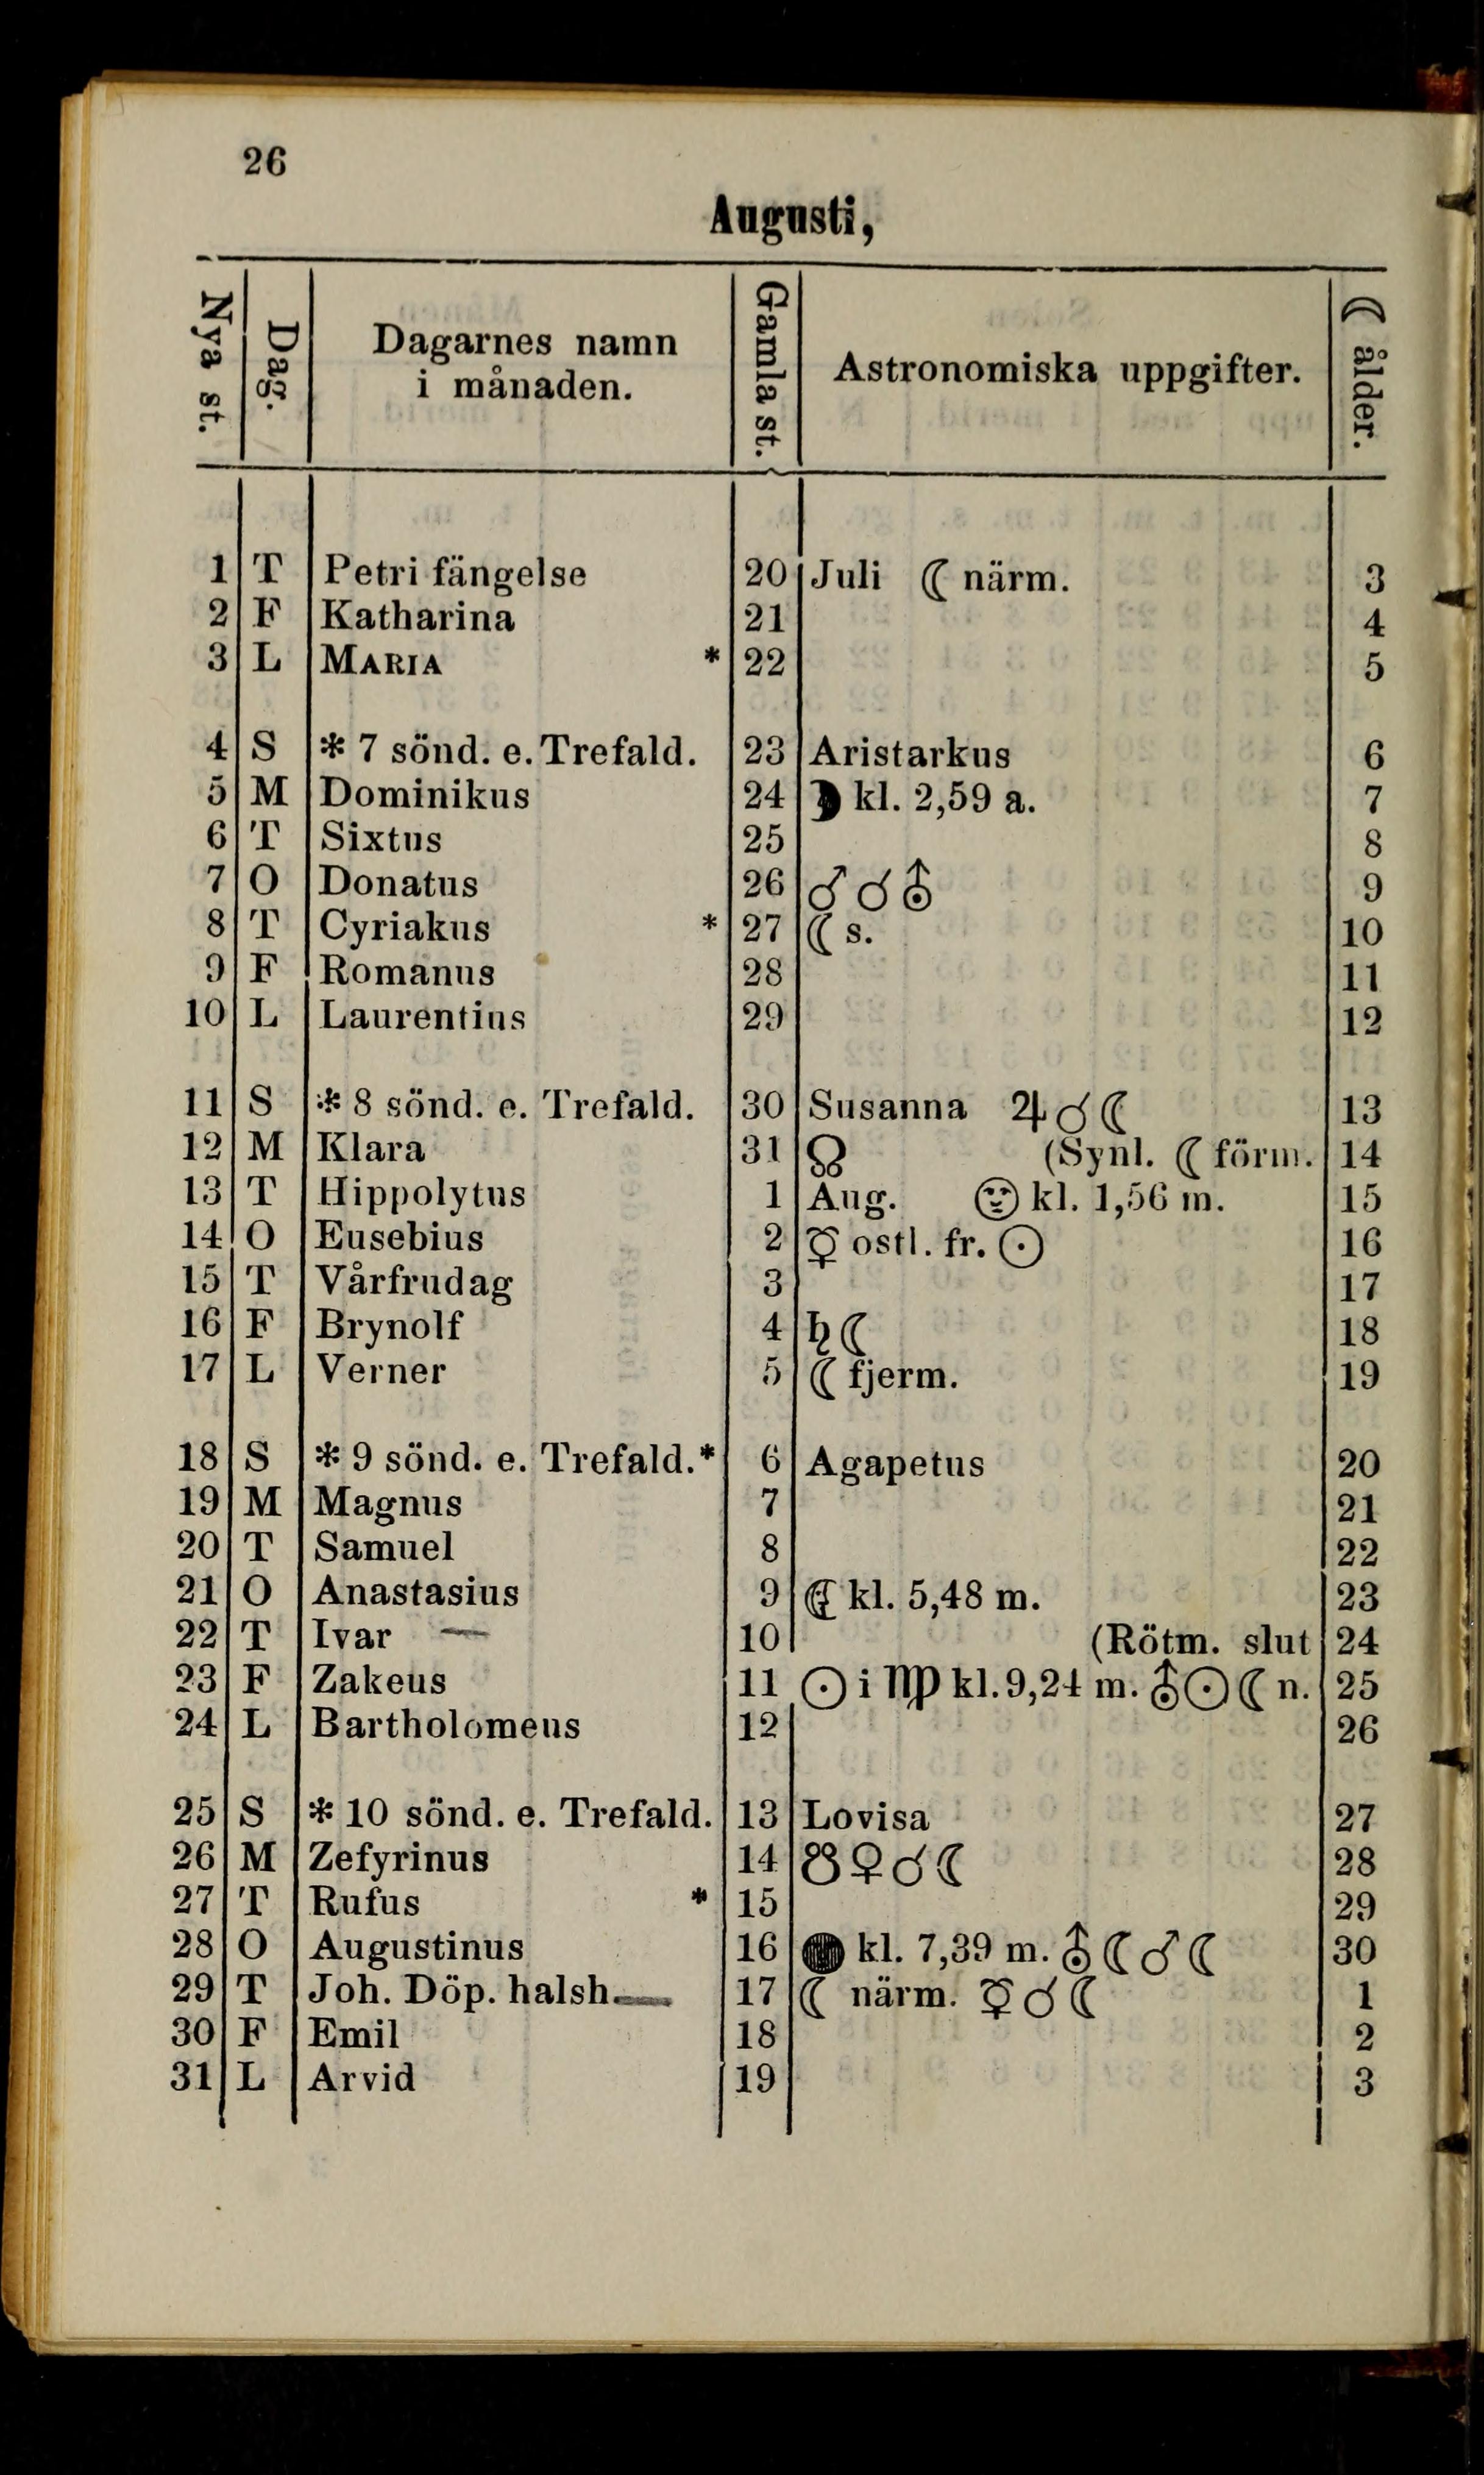 26
Augusti,
Nya st. Dag. Dagarnes namn i månaden. Gamla st. Astronomiska uppgifter. ☾ ålder.
1 T Petri fängelse 20 Juli ☾ närm. 3
2 F Katharina 21 4
3 L MARIA * 22 5
4 S * 7 sönd. e. Trefald. 23 Aristarkus 6
5 M Dominikus 24 ☽ kl. 2,59 a. 7
6 T Sixtus 25 8
7 O Donatus 26 ♂☌⛢ 9
8 T Cyriakus * 27 ☾ s. 10
9 F Romanus 28 11
10 L Laurentius 29 12
11 S * 8 sönd. e. Trefald. 30 Susanna ♃☌☾ 13
12 M Klara 31 ☊ (Synl. ☾ förm. 14
13 T Hippolytus 1 Aug. 🌝 kl. 1,56 m. 15
14 O Eusebius 2 ☿ ostl. fr. ☉ 16
15 T Vårfrudag 3 17
16 F Brynolf 4 ♄☾ 18
17 L Verner 5 ☾ fjerm. 19
18 S * 9 sönd. e. Trefald. * 6 Agapetus 20
19 M Magnus 7 21
20 T Samuel 8 22
21 O Anastasius 9 ☾ kl. 5,48 m. 23
22 T Ivar — 10 (Rötm. slut 24
23 F Zakeus 11 ☉ i ♍ kl. 9,24 m. ⛢☉☾ n. 25
24 L Bartholomeus 12 26
25 S * 10 sönd. e. Trefald. 13 Lovisa 27
26 M Zefyrinus 14 ☋♀☌☾ 28
27 T Rufus * 15 29
28 O Augustinus 16 ● kl. 7,39 m. ⛢☾♂☾ 30
29 T Joh. Döp. halsh. 17 ☾ närm. ☿☌☾ 1
30 F Emil 18 2
31 L Arvid 19 3